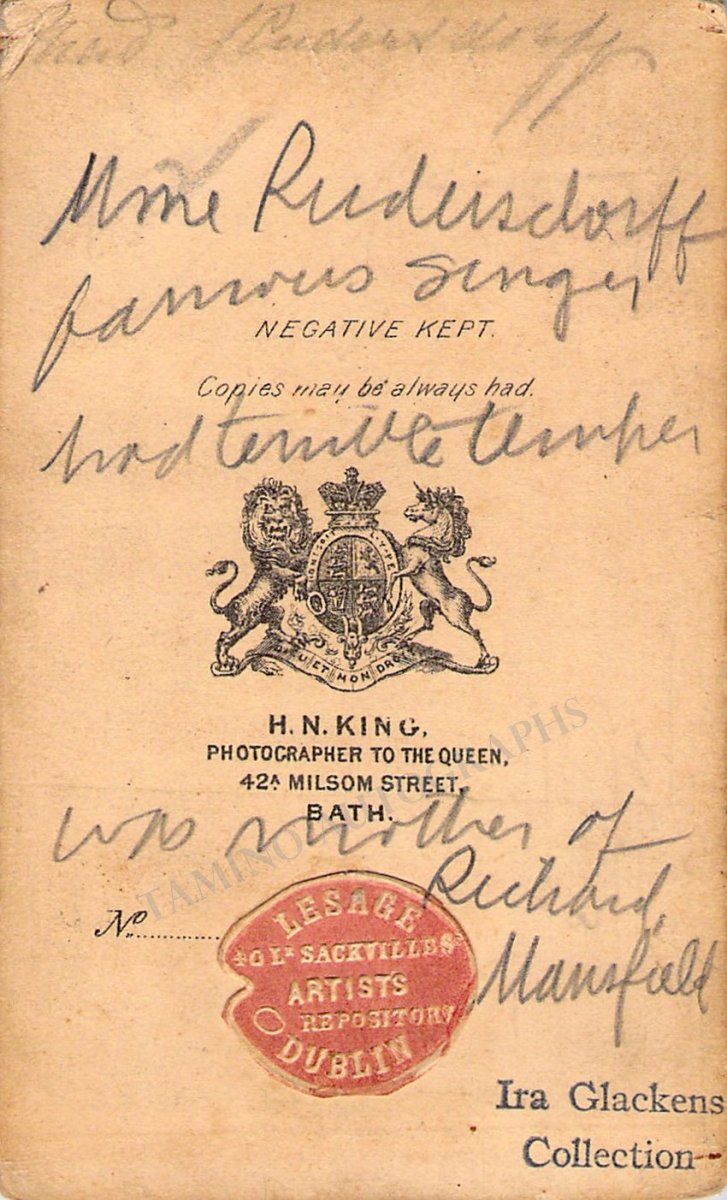 Mad Rudersdorff
Mme Rudersdorff
famous singer
NEGATIVE KEPT.
Copies may be always had.
had terrible temper
DIEU ET MON DROIT
H. N. KING,
PHOTOGRAPHER TO THE QUEEN,
42A MILSOM STREET,
BATH.
was mother of
Richard
Mansfield
No
LESAGE
40 Lr SACKVILLE St
ARTISTS
REPOSITORY
DUBLIN
Ira Glackens
Collection
TAMINO AUTOGRAPHS